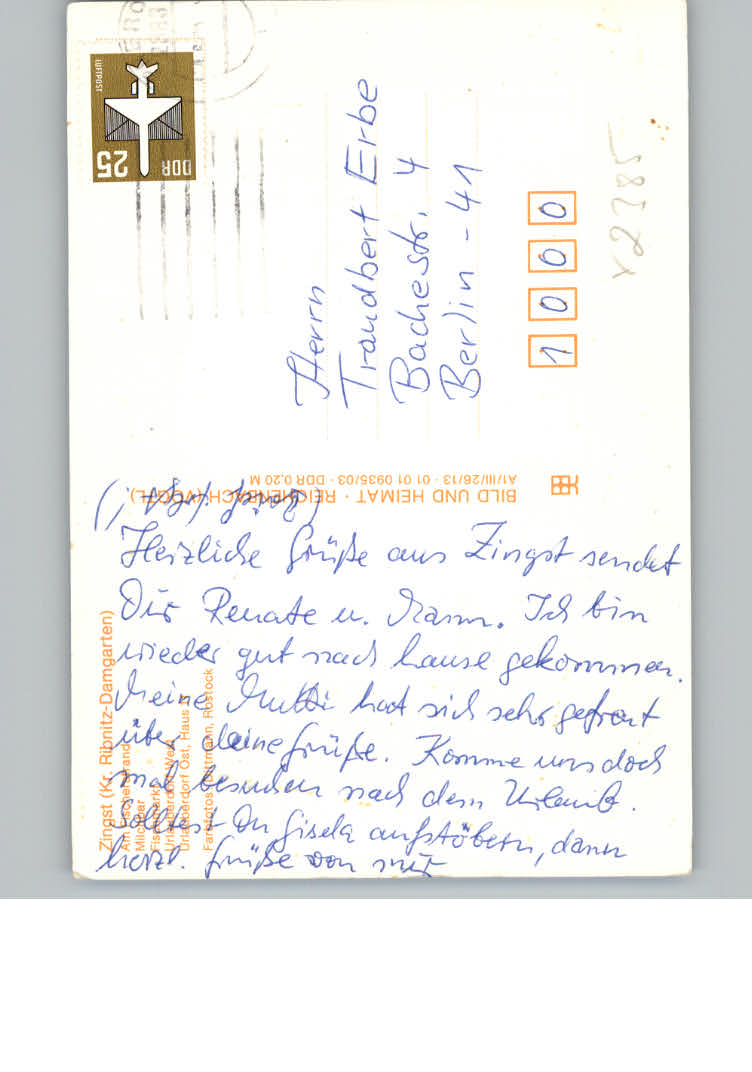 LUFTPOST
25
DDR
Herrn
Traudbert Erbe
Bachestr. 4
Berlin - 41
1000
V2385
BILD UND HEIMAT · REICHENBACH (VOGTL)
A1/III/26/13 · 01 01 0935/03 · DDR 0,20 M
Herzliche Grüße aus Zingst sendet
Dir Renate u. Mann. Ich bin
wieder gut nach hause gekommen.
Meine Mutti hat sich sehr gefreut
über deine Grüße. Komme uns doch
mal besuchen nach dem Urlaub.
Solltest Du Gisela aufstöbern, dann
herzl. Grüße von mir
Zingst (Kr. Ribnitz-Damgarten)
Am
Milchbar
Urlauberdorf West
Urlauberdorf Ost, Haus
Farbfotos Dittmann, Rostock